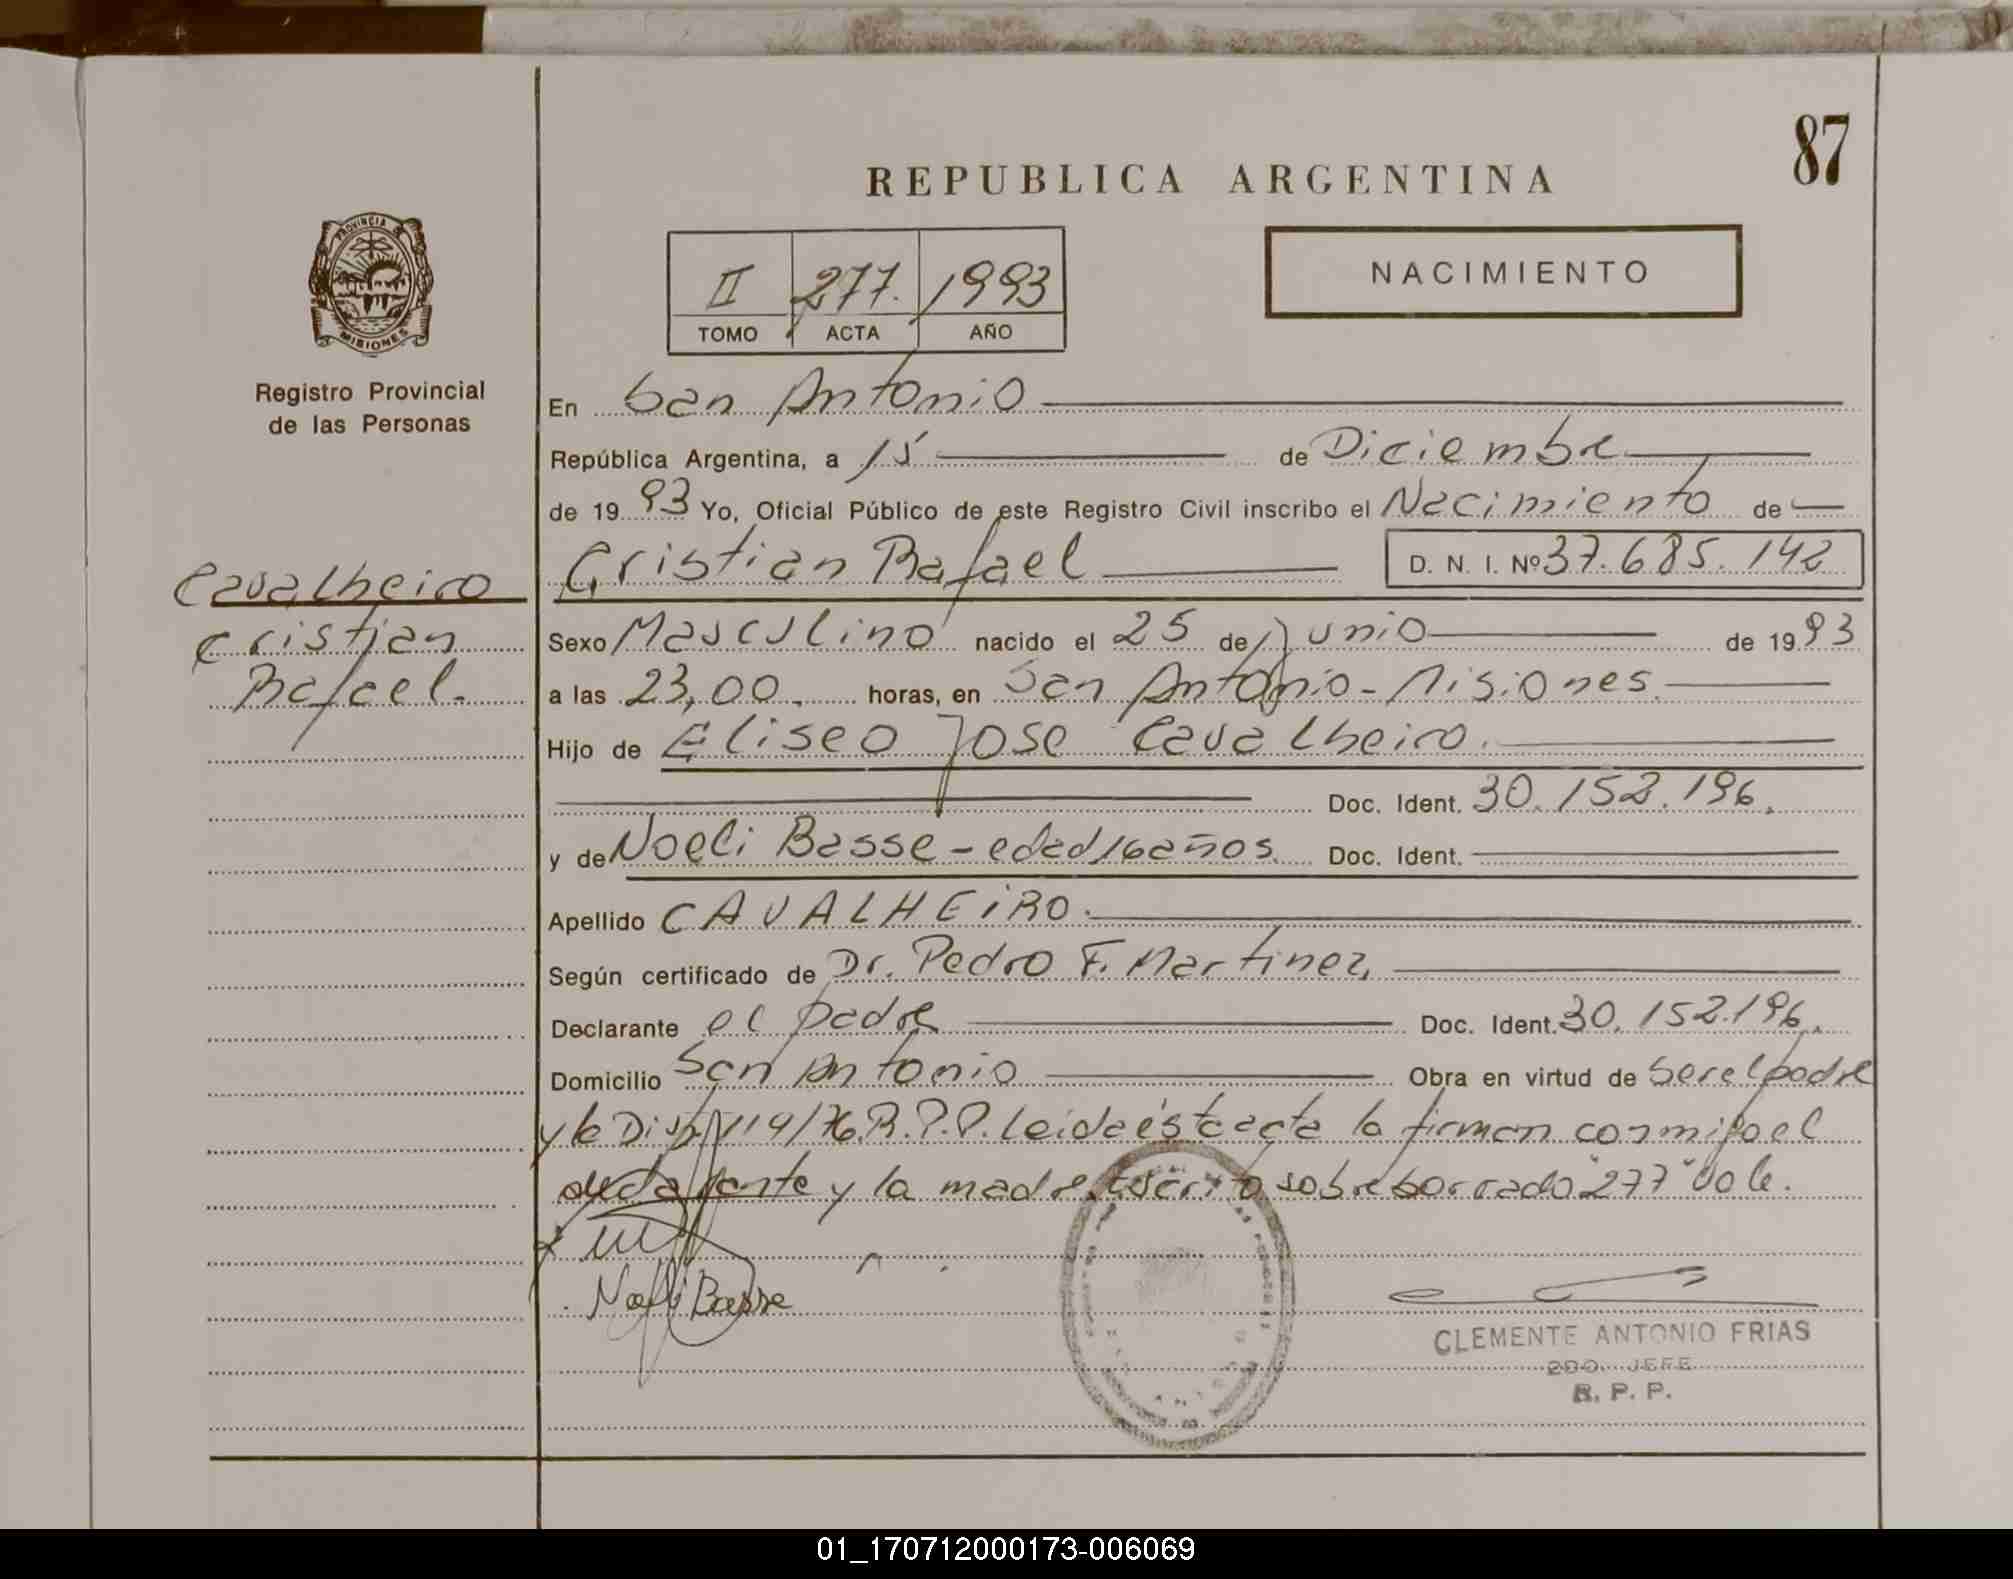 87
REPUBLICA ARGENTINA
PROVINCIA DE
MISIONES
NACIMIENTO
II 277. 1993
TOMO ACTA AÑO
Registro Provincial
de las Personas
En San Antonio
República Argentina, a 15 de Diciembre
de 1993 Yo, Oficial Público de este Registro Civil inscribo el Nacimiento de
Cavalheiro
Cristian
Rafael.
Cristian Rafael D. N. I. Nº 37.685.142
Sexo Masculino nacido el 25 de Junio de 1993
a las 23,00. horas, en San Antonio - Misiones.
Hijo de Eliseo Jose Cavalheiro.
Doc. Ident. 30.152.196.
y de Noeli Basse - edad 16 años. Doc. Ident.
Apellido CAVALHEiRO.
Según certificado de Dr. Pedro F. Martinez,
Declarante el padre Doc. Ident. 30.152.196.
Domicilio San Antonio Obra en virtud de ser el padre
y la Disp. 119/76. R.P.P. leida ésta acta la firman conmigo el
declarante y la madre, escrito sobre borrado "277" vale.
Noeli Basse
CLEMENTE ANTONIO FRIAS
2DO. JEFE
R. P. P.
01_170712000173-006069